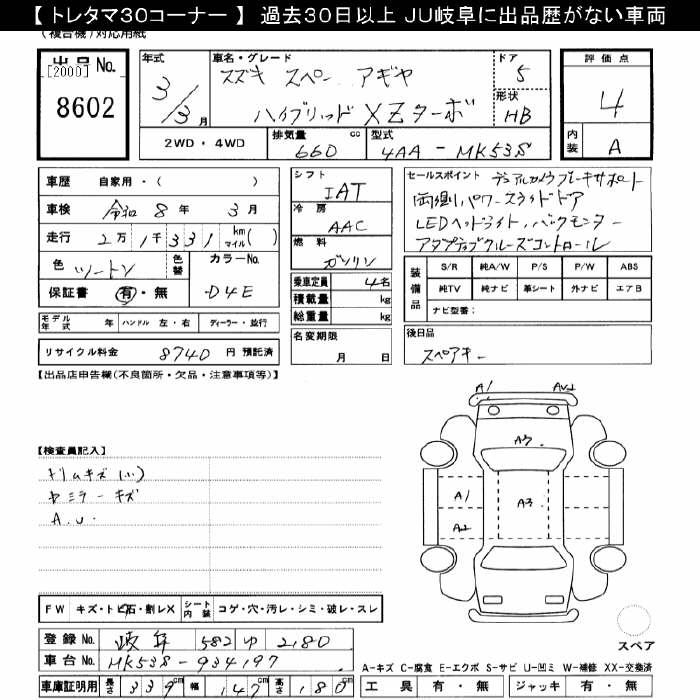 【 トレタマ30コーナー 】 過去30日以上 JU岐阜に出品歴がない車両
(複合機)対応用紙
出品No.
[2000]
8602
年式
3/3月
車名・グレード
スズキ スペーアギヤ
ハイブリッドXZターボ
ドア
5
形状
HB
評価点
4
内装
A
2WD・4WD
排気量
660 cc
型式
4AA-MK53S
車歴 自家用・( )
車検 令和 8年 3月
走行 2万1千331 km マイル( )
色 ツートン
色替
カラーNo.
D4E
保証書 有・無
モデル年式 年 ハンドル 左・右 ディーラー・並行
リサイクル料金 8740 円 預託済
シフト
IAT
冷房
AAC
燃料
ガソリン
乗車定員 4名
積載量 kg
総重量 kg
名変期限
月 日
セールスポイント デュアルカメラブレーキサポート
両側パワースライドドア
LEDヘッドライト、バックモニター
アダプティブクルーズコントロール
装備品
S/R 純A/W P/S P/W ABS
純TV 純ナビ 革シート 外ナビ エアB
ナビ型番:
後日品
スペアキー
【出品店申告欄(不良箇所・欠品・注意事項等)】
【検査員記入】
ドムキズ(小)
ミラーキズ
A.U.
A1
A3
A1
A3
A2
FW キズ・トビ石・割レX シート内装 コゲ・穴・汚レ・シミ・破レ・スレ
登録No. 岐阜 582 ゆ 2180
車台No. MK53S-934197
車庫証明用 長さ 339cm 幅 147cm 高さ 180cm
スペア
A-キズ C-腐食 E-エクボ S-サビ U-凹ミ W-補修 XX-交換済
工具 有・無 ジャッキ 有・無